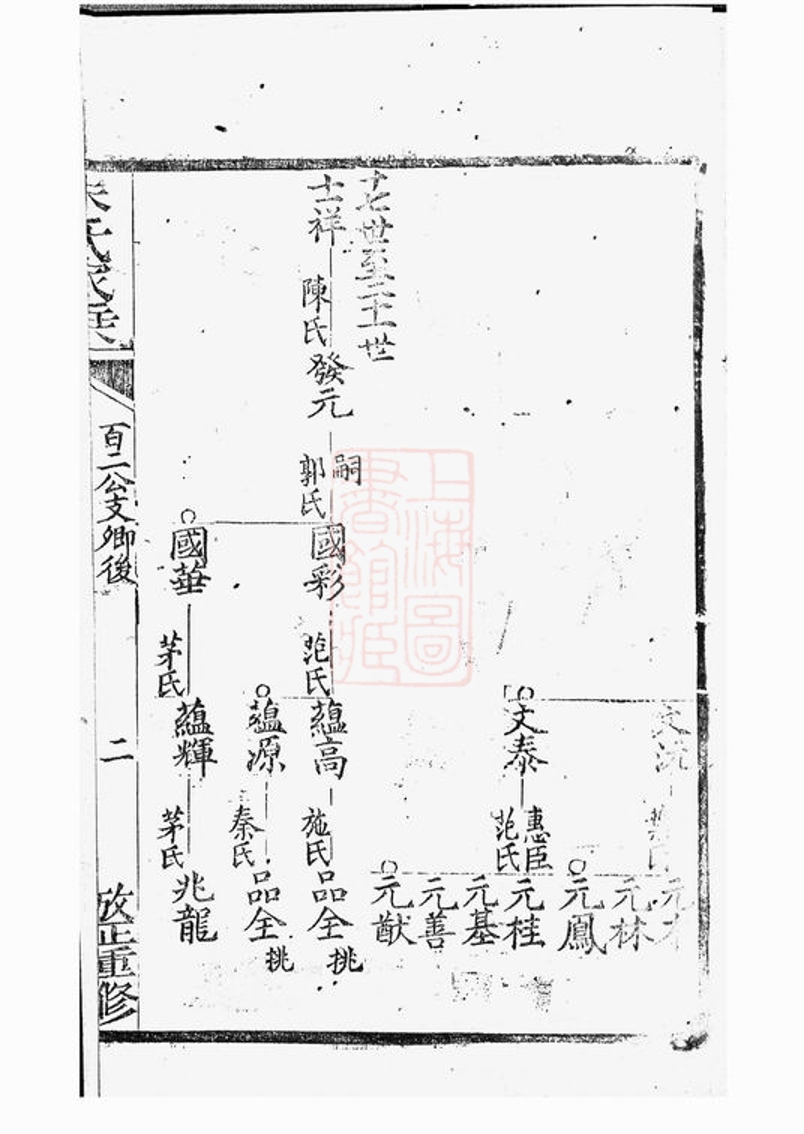 元林
元鳳
文泰
惠臣
范氏
元桂
元基
元善
元猷
十七世至二十一世
士祥
陳氏
發元
嗣
郭氏
國彩
范氏
蘊高
施氏
品全
挑
蘊源
秦氏
品全
挑
國華
茅氏
蘊輝
茅氏
兆龍
百二公支卿後
二
上海圖書館藏